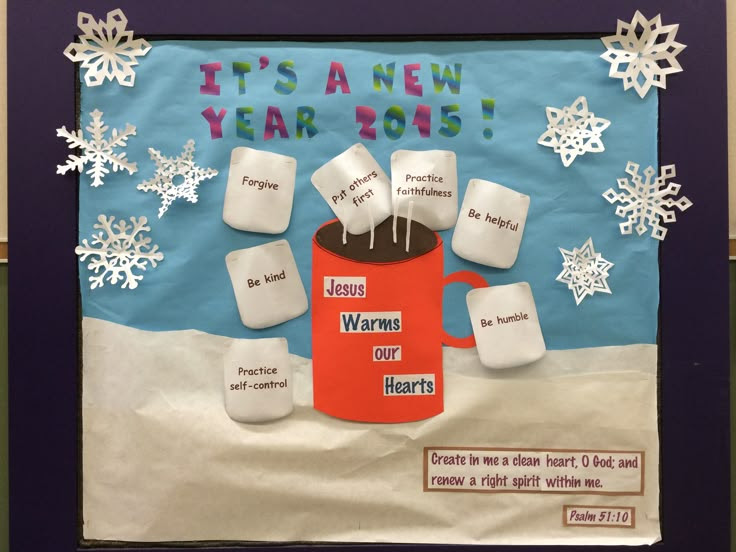 IT'S A NEW
YEAR 2015!
Forgive
Put others
first
Practice
faithfulness
Be helpful
Be kind
Be humble
Practice
self-control
Jesus
Warms
our
Hearts
Create in me a clean heart, O God; and
renew a right spirit within me.
Psalm 51:10